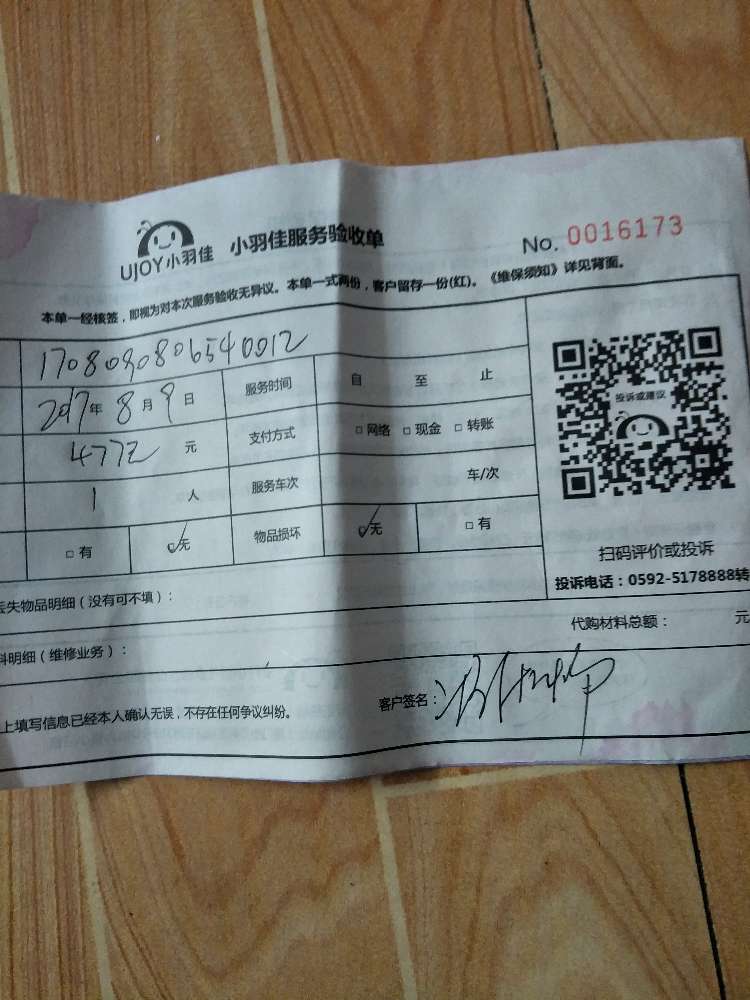 UJOY小羽佳 小羽佳服务验收单 No. 0016173
本单一经核签，即视为对本次服务验收无异议。本单一式两份，客户留存一份(红)。《维保须知》详见背面。
1708090806540012
2017年8月9日 服务时间 自 至 止
477元 支付方式 □网络 □现金 □转账
1人 服务车次 车/次
□有 ✓无 物品损坏 ✓无 □有
投诉或建议
扫码评价或投诉
投诉电话：0592-5178888转
丢失物品明细（没有可不填）：
代购材料总额： 元
料明细（维修业务）：
上填写信息已经本人确认无误，不存在任何争议纠纷。 客户签名：